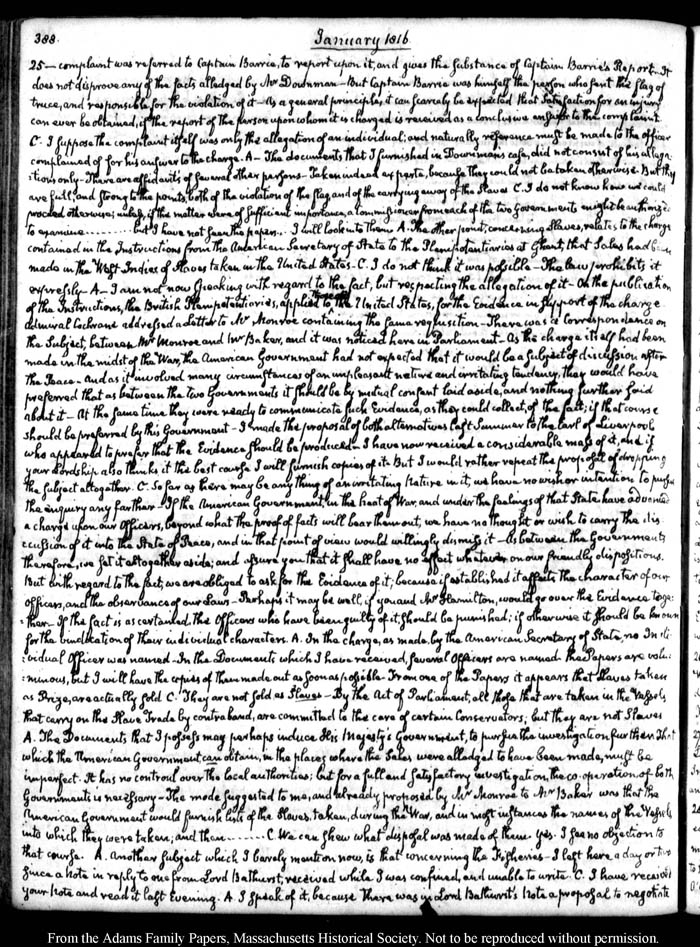 388. January 1816
25 — complaint was referred to Captain Barrie, to report upon it, and gives the substance of Captain Barrie's Report. It
does not disprove any of the facts alledged by Mr Downman — But Captain Barrie was himself the person who sent the flag of
truce, and responsible for the violation of it — As a general principle, it can scarcely be expected that satisfaction for an injury
can ever be obtained, if the report of the person upon whom it is charged is received as a conclusive answer to the complaint.
C. I suppose the complaint itself was only the allegation of an individual; and naturally reference must be made to the officer
complained of for his answer to the charge. A — The documents that I furnished in Downman's case, did not consist of his allega-
:tions only — There are affidavits of several other persons — Taken indeed ex parte, because they could not be taken otherwise. But they
are full, and strong to the points, both of the violation of the flag and of the carrying away of the Slaves C. I do not know how we could
proceed otherwise; unless, if the matter were of sufficient importance, a Commissioner from each of the two Governments might be authorized
to examine .......... but I have not seen the papers. . I will look into them A. The other point, concerning Slaves, relates to the charge
contained in the Instructions from the American Secretary of State to the Plenipotentiaries at Ghent, that Sales had been
made in the West Indies of Slaves taken in the United States. C. I do not think it was possible — The law prohibits it
expressly. A — I am not now speaking with regard to the fact, but respecting the allegation of it — On the publication
of the Instructions, the British Plenipotentiaries, applied to those of the United States, for the Evidence in support of the charge
Admiral Cochrane addressed a Letter to Mr Monroe containing the same requisition — There was a Correspondence on
the Subject, between Mr Monroe and Mr Baker, and it was noticed here in Parliament — As the charge itself had been
made in the midst of the War, the American Government had not expected that it would be a subject of discussion after
the Peace — And as it involved many circumstances of an unpleasant nature and irritating tendency, they would have
preferred that as between the two Governments it should be by mutual consent laid aside, and nothing further said
about it — At the same time they were ready to communicate such Evidence, as they could collect, of the fact; if that course
should be preferred by this Government — I made the proposal of both alternatives last Summer to the Earl of Liverpool
who appeared to prefer that the Evidence should be produced — I have now received a considerable mass of it, and if
your Lordship also thinks it the best course I will furnish copies of it. But I would rather repeat the proposal of dropping
the subject altogether. C. So far as there may be any thing of an irritating nature in it, we have no wish or intention to pursue
the enquiry any farther — If the American Government, in the heat of War, and under the feelings of that State have advanced
a charge upon our Officers, beyond what the proof of facts will bear them out, we have no thought or wish to carry the dis-
:cussion of it into the State of Peace, and in that point of view would willingly dismiss it — As between the Governments
therefore, we set it altogether aside; and assure you that it shall have no effect whatever on our friendly dispositions.
But with regard to the fact, we are obliged to ask for the Evidence of it; because if established it affects the character of our
officers, and the observance of our Laws — Perhaps it may be well, if you and Mr Hamilton, would go over the Evidence toge-
:ther — If the fact is ascertained, the Officers who have been guilty of it, should be punished; if otherwise it should be known
for the vindication of their individual characters. A. In the charge, as made, by the American Secretary of State, no Indi-
:vidual Officer was named — In the Documents which I have received, several Officers are named. the Papers are volu-
:minous, but I will have the copies of them made out as soon as possible — From one of the Papers it appears that slaves taken
as Prize, are actually sold C. They are not sold as Slaves — By the Act of Parliament, all those that are taken in the Vessels
that carry on the Slave Trade by contraband, are committed to the care of certain Conservators; but they are not Slaves
A. The Documents that I possess may perhaps induce His Majesty's Government, to pursue the investigation further. That
which the American Government can obtain, in the places where the Sales were alledged to have been made, must be
imperfect. It has no controul over the local authorities; but for a full and satisfactory investigation, the co-operation of both
Governments is necessary — The mode suggested to me, and already proposed by Mr Monroe to Mr Baker was that the
American Government would furnish lists of the Slaves, taken, during the War, and in most instances the names of the Vessels
into which they were taken; and then ....... C. We can shew what disposal was made of them. yes. I see no objection to
that course. A. Another subject which I barely mention now, is that concerning the Fisheries — I left here a day or two
since a Note in reply to one from Lord Bathurst, received while I was confined, and unable to write. C. I have received
your Note and read it last Evening. A. I speak of it, because there was in Lord Bathurst's Note a proposal to negotiate
From the Adams Family Papers, Massachusetts Historical Society. Not to be reproduced without permission.